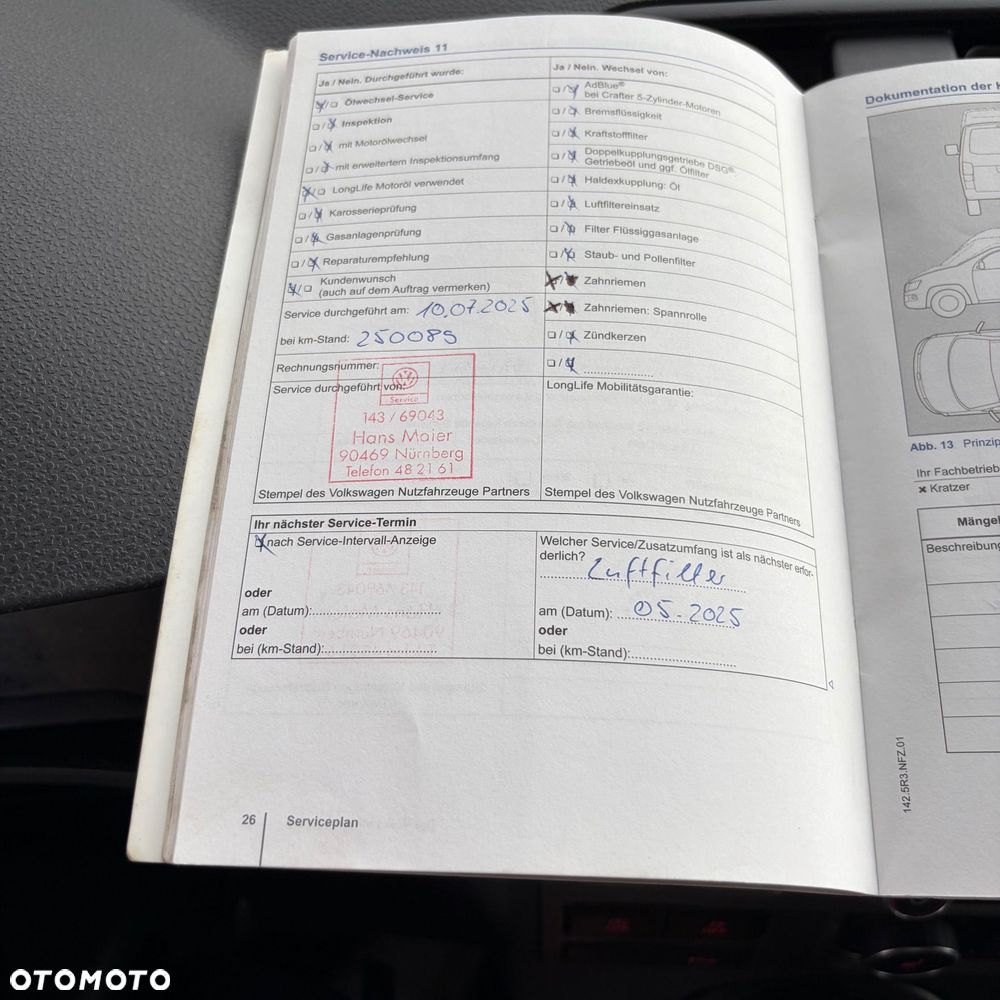 Service-Nachweis 11
Ja / Nein. Durchgeführt wurde:
Ölwechsel-Service
Inspektion
mit Motorölwechsel
mit erweitertem Inspektionsumfang
LongLife Motoröl verwendet
Karosserieprüfung
Gasanlagenprüfung
Reparaturempfehlung
Kundenwunsch
(auch auf dem Auftrag vermerken)
Service durchgeführt am: 10.07.2025
bei km-Stand: 250089
Rechnungsnummer:
Service durchgeführt von:
Service
143 / 69043
Hans Maier
90469 Nürnberg
Telefon 48 21 61
Stempel des Volkswagen Nutzfahrzeuge Partners
Ja / Nein. Wechsel von:
AdBlue®
bei Crafter 5-Zylinder-Motoren
Bremsflüssigkeit
Kraftstofffilter
Doppelkupplungsgetriebe DSG®:
Getriebeöl und ggf. Ölfilter
Haldexkupplung: Öl
Luftfiltereinsatz
Filter Flüssiggasanlage
Staub- und Pollenfilter
Zahnriemen
Zahnriemen: Spannrolle
Zündkerzen
LongLife Mobilitätsgarantie:
Stempel des Volkswagen Nutzfahrzeuge Partners
Ihr nächster Service-Termin
nach Service-Intervall-Anzeige
oder
am (Datum):
oder
bei (km-Stand):
Welcher Service/Zusatzumfang ist als nächster erfor-
derlich?
Luftfilter
am (Datum): 05.2025
oder
bei (km-Stand):
26 Serviceplan
Dokumentation der
Abb. 13 Prinzip
Ihr Fachbetrieb
× Kratzer
Mängel
Beschreibung
142.5R3.NFZ.01
OTOMOTO